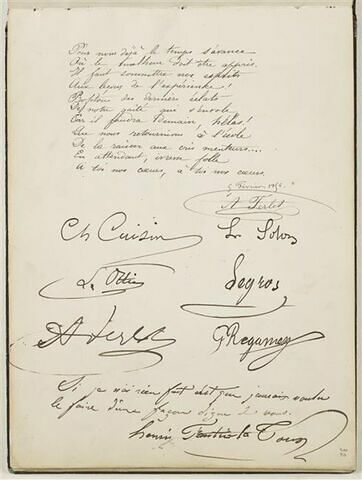 Pour nous déjà le temps s'avance
Où le bonheur doit être appris.
Il faut soumettre nos esprits
Aux leçons de l'expérience!
Profitons des derniers éclats
De notre gaîté qui s'envole
Car il faudra demain, hélas!
Que nous retournions à l'école
De la raison aux cris menteurs....
En attendant, ivresse folle
A toi nos cœurs, à toi nos cœurs.
5 Février
A Ferlet
Ch Cuisin
L. Solon
L. Ottin
Legros
A Ferlet
G Regamey
Si je n'ai rien fait c'est que j'aurais voulu
le faire d'une façon digne de vous.
henri Fantin la Tour